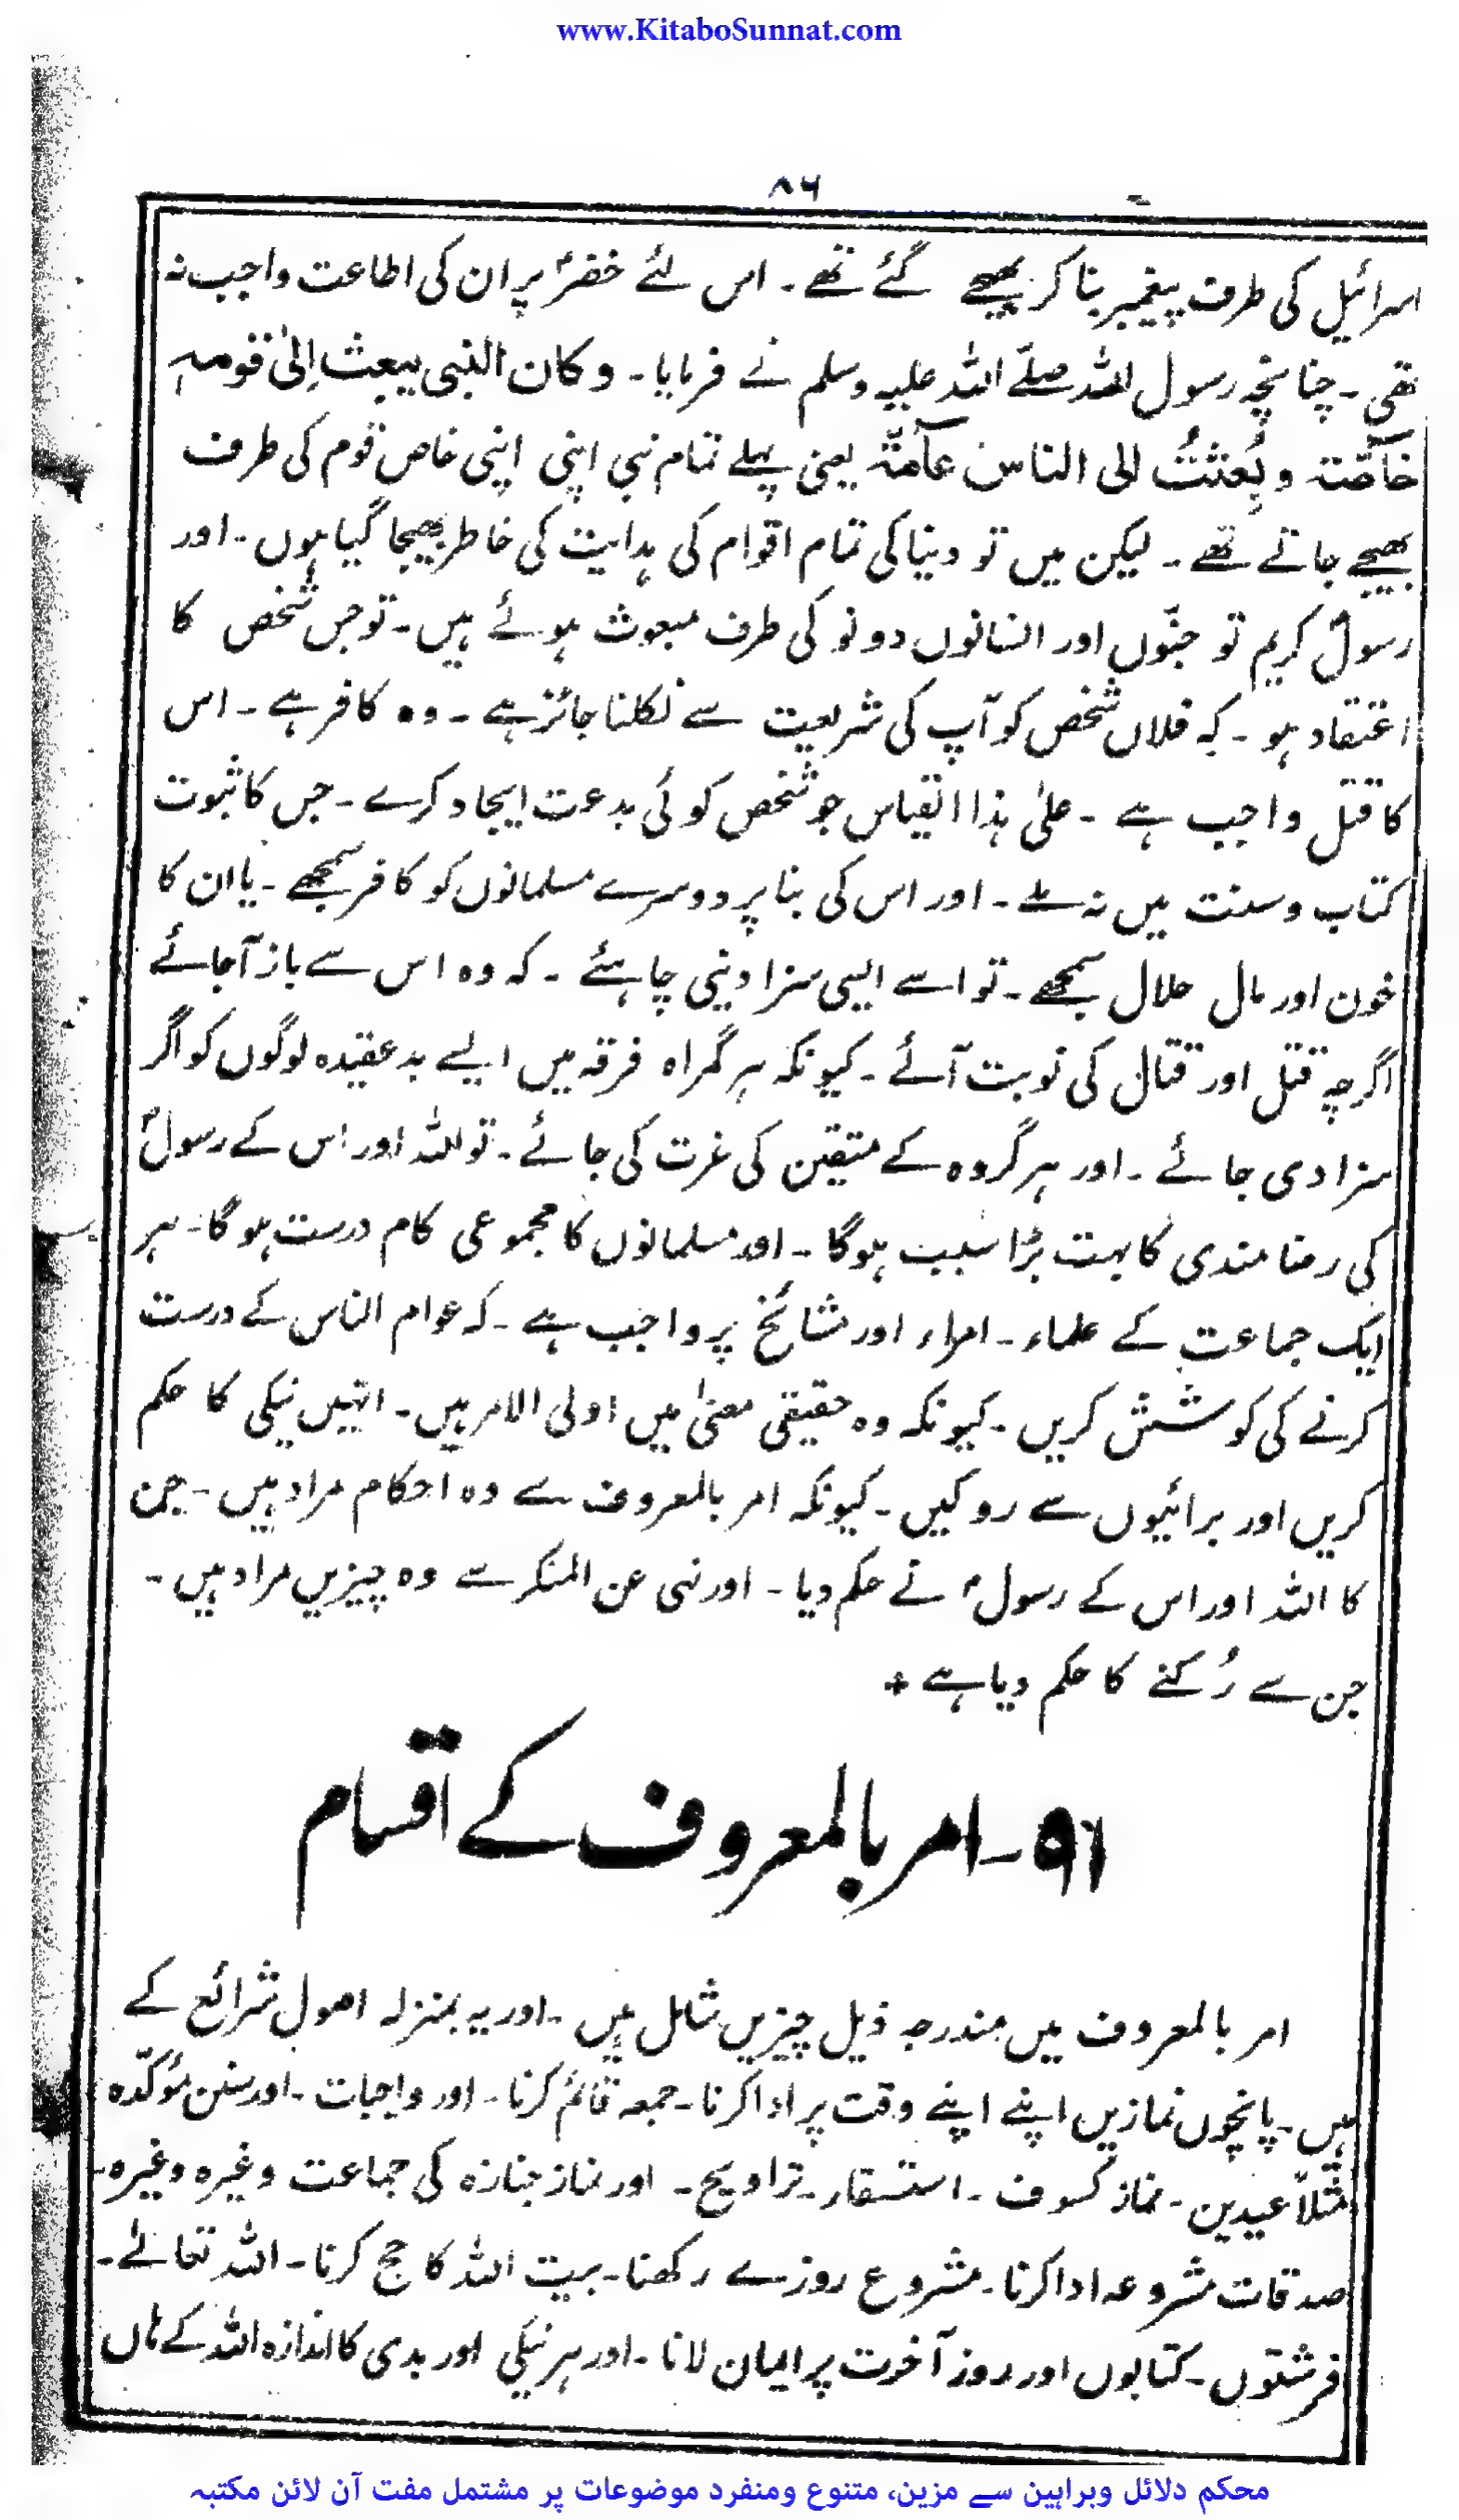 www.KitaboSunnat.com
۸۶
اسرائیل کی طرف پیغمبر بنا کر بھیجے گئے تھے۔ اس لئے خضرؑ پر ان کی اطاعت واجب نہ
تھی۔ چنانچہ رسول اللہ صلے اللہ علیہ وسلم نے فرمایا۔ وکان النبی یبعث اِلیٰ قومہٖ
خاصّۃ وبُعثتُ الی الناس عآمّۃ یعنی پہلے تمام نبی اپنی اپنی خاص قوم کی طرف
بھیجے جاتے تھے۔ لیکن میں تو دنیا کی تمام اقوام کی ہدایت کی خاطر بھیجا گیا ہوں۔ اور
رسولؐ کریم تو جنّوں اور انسانوں دونو کی طرف مبعوث ہوئے ہیں۔ تو جس شخص کا
اعتقاد ہو۔ کہ فلاں شخص کو آپ کی شریعت سے نکلنا جائز ہے۔ وہ کافر ہے۔ اس
کا قتل واجب ہے۔ علیٰ ہذا القیاس جو شخص کوئی بدعت ایجاد کرے۔ جس کا ثبوت
کتاب و سنت میں نہ ملے۔ اور اس کی بنا پر دوسرے مسلمانوں کو کافر سمجھے۔ یا ان کا
خون اور مال حلال سمجھے۔ تو اسے ایسی سزا دینی چاہئے۔ کہ وہ اس سے باز آجائے
اگرچہ قتل اور قتال کی نوبت آئے۔ کیونکہ ہر گمراہ فرقہ میں ایسے بدعقیدہ لوگوں کو اگر
سزا دی جائے۔ اور ہر گروہ کے متقین کی عزت کی جائے۔ تو اللہ اور اس کے رسولؐ
کی رضا مندی کا بہت بڑا سبب ہوگا۔ اور مسلمانوں کا مجموعی کام درست ہوگا۔ ہر
ایک جماعت کے علماء۔ امراء اور مشائخ پر واجب ہے۔ کہ عوام الناس کے درست
کرنے کی کوشش کریں۔ کیونکہ وہ حقیقی معنیٰ میں اولی الامر ہیں۔ انہیں نیکی کا حکم
کریں اور برائیوں سے روکیں۔ کیونکہ امر بالمعروف سے وہ احکام مراد ہیں۔ جن
کا اللہ اور اس کے رسولؐ نے حکم دیا۔ اور نہی عن المنکر سے وہ چیزیں مراد ہیں۔
جن سے رُکنے کا حکم دیا ہے +
۵۹۔ امر بالمعروف کے اقسام
امر بالمعروف میں مندرجہ ذیل چیزیں شامل ہیں۔ اور یہ بمنزلہ اصول شرائع کے
ہیں۔ پانچوں نمازیں اپنے اپنے وقت پر ادا کرنا۔ جمعہ قائم کرنا۔ اور واجبات۔ اور سنن مؤکّدہ
مثلاً عیدین۔ نماز کسوف۔ استسقار۔ تراویح۔ اور نماز جنازہ کی جماعت وغیرہ وغیرہ۔
صدقات مشروعہ ادا کرنا۔ مشروع روزے رکھنا۔ بیت اللہ کا حج کرنا۔ اللہ تعالےٰ۔
فرشتوں۔ کتابوں اور روز آخرت پر ایمان لانا۔ اور ہر نیکی اور بدی کا اندازہ اللہ کے ہاں
محکم دلائل وبراہین سے مزین، متنوع ومنفرد موضوعات پر مشتمل مفت آن لائن مکتبہ